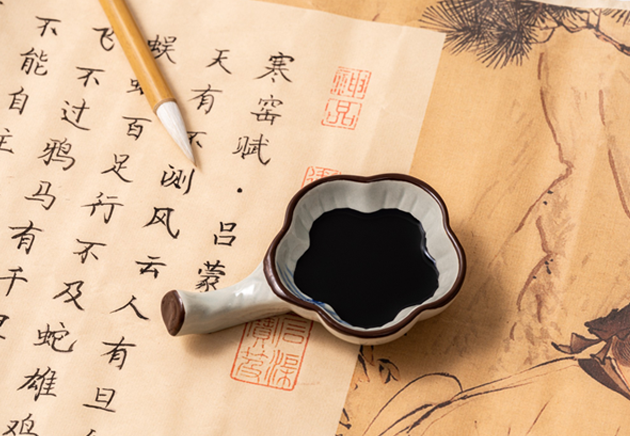 寒窑赋·吕蒙
天有不测风云人有旦
蜈蚣百足行不及蛇雄鸡
飞不过鸦马有千
不能自
神品